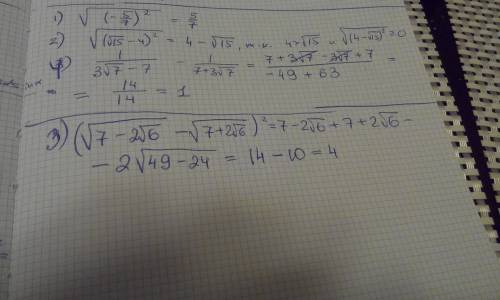 1) √(-5/7)² = 5/7
2) √(√15-4)² = 4-√15, т.к. 4>√15 и √(4-√15)>0
4) 1/(3√7-7) - 1/(7+3√7) = (7+3√7-3√7+7)/(-49+63) =
= 14/14 = 1
3) (√(7-2√6) - √(7+2√6))² = 7-2√6+7+2√6-
-2√(49-24) = 14-10=4